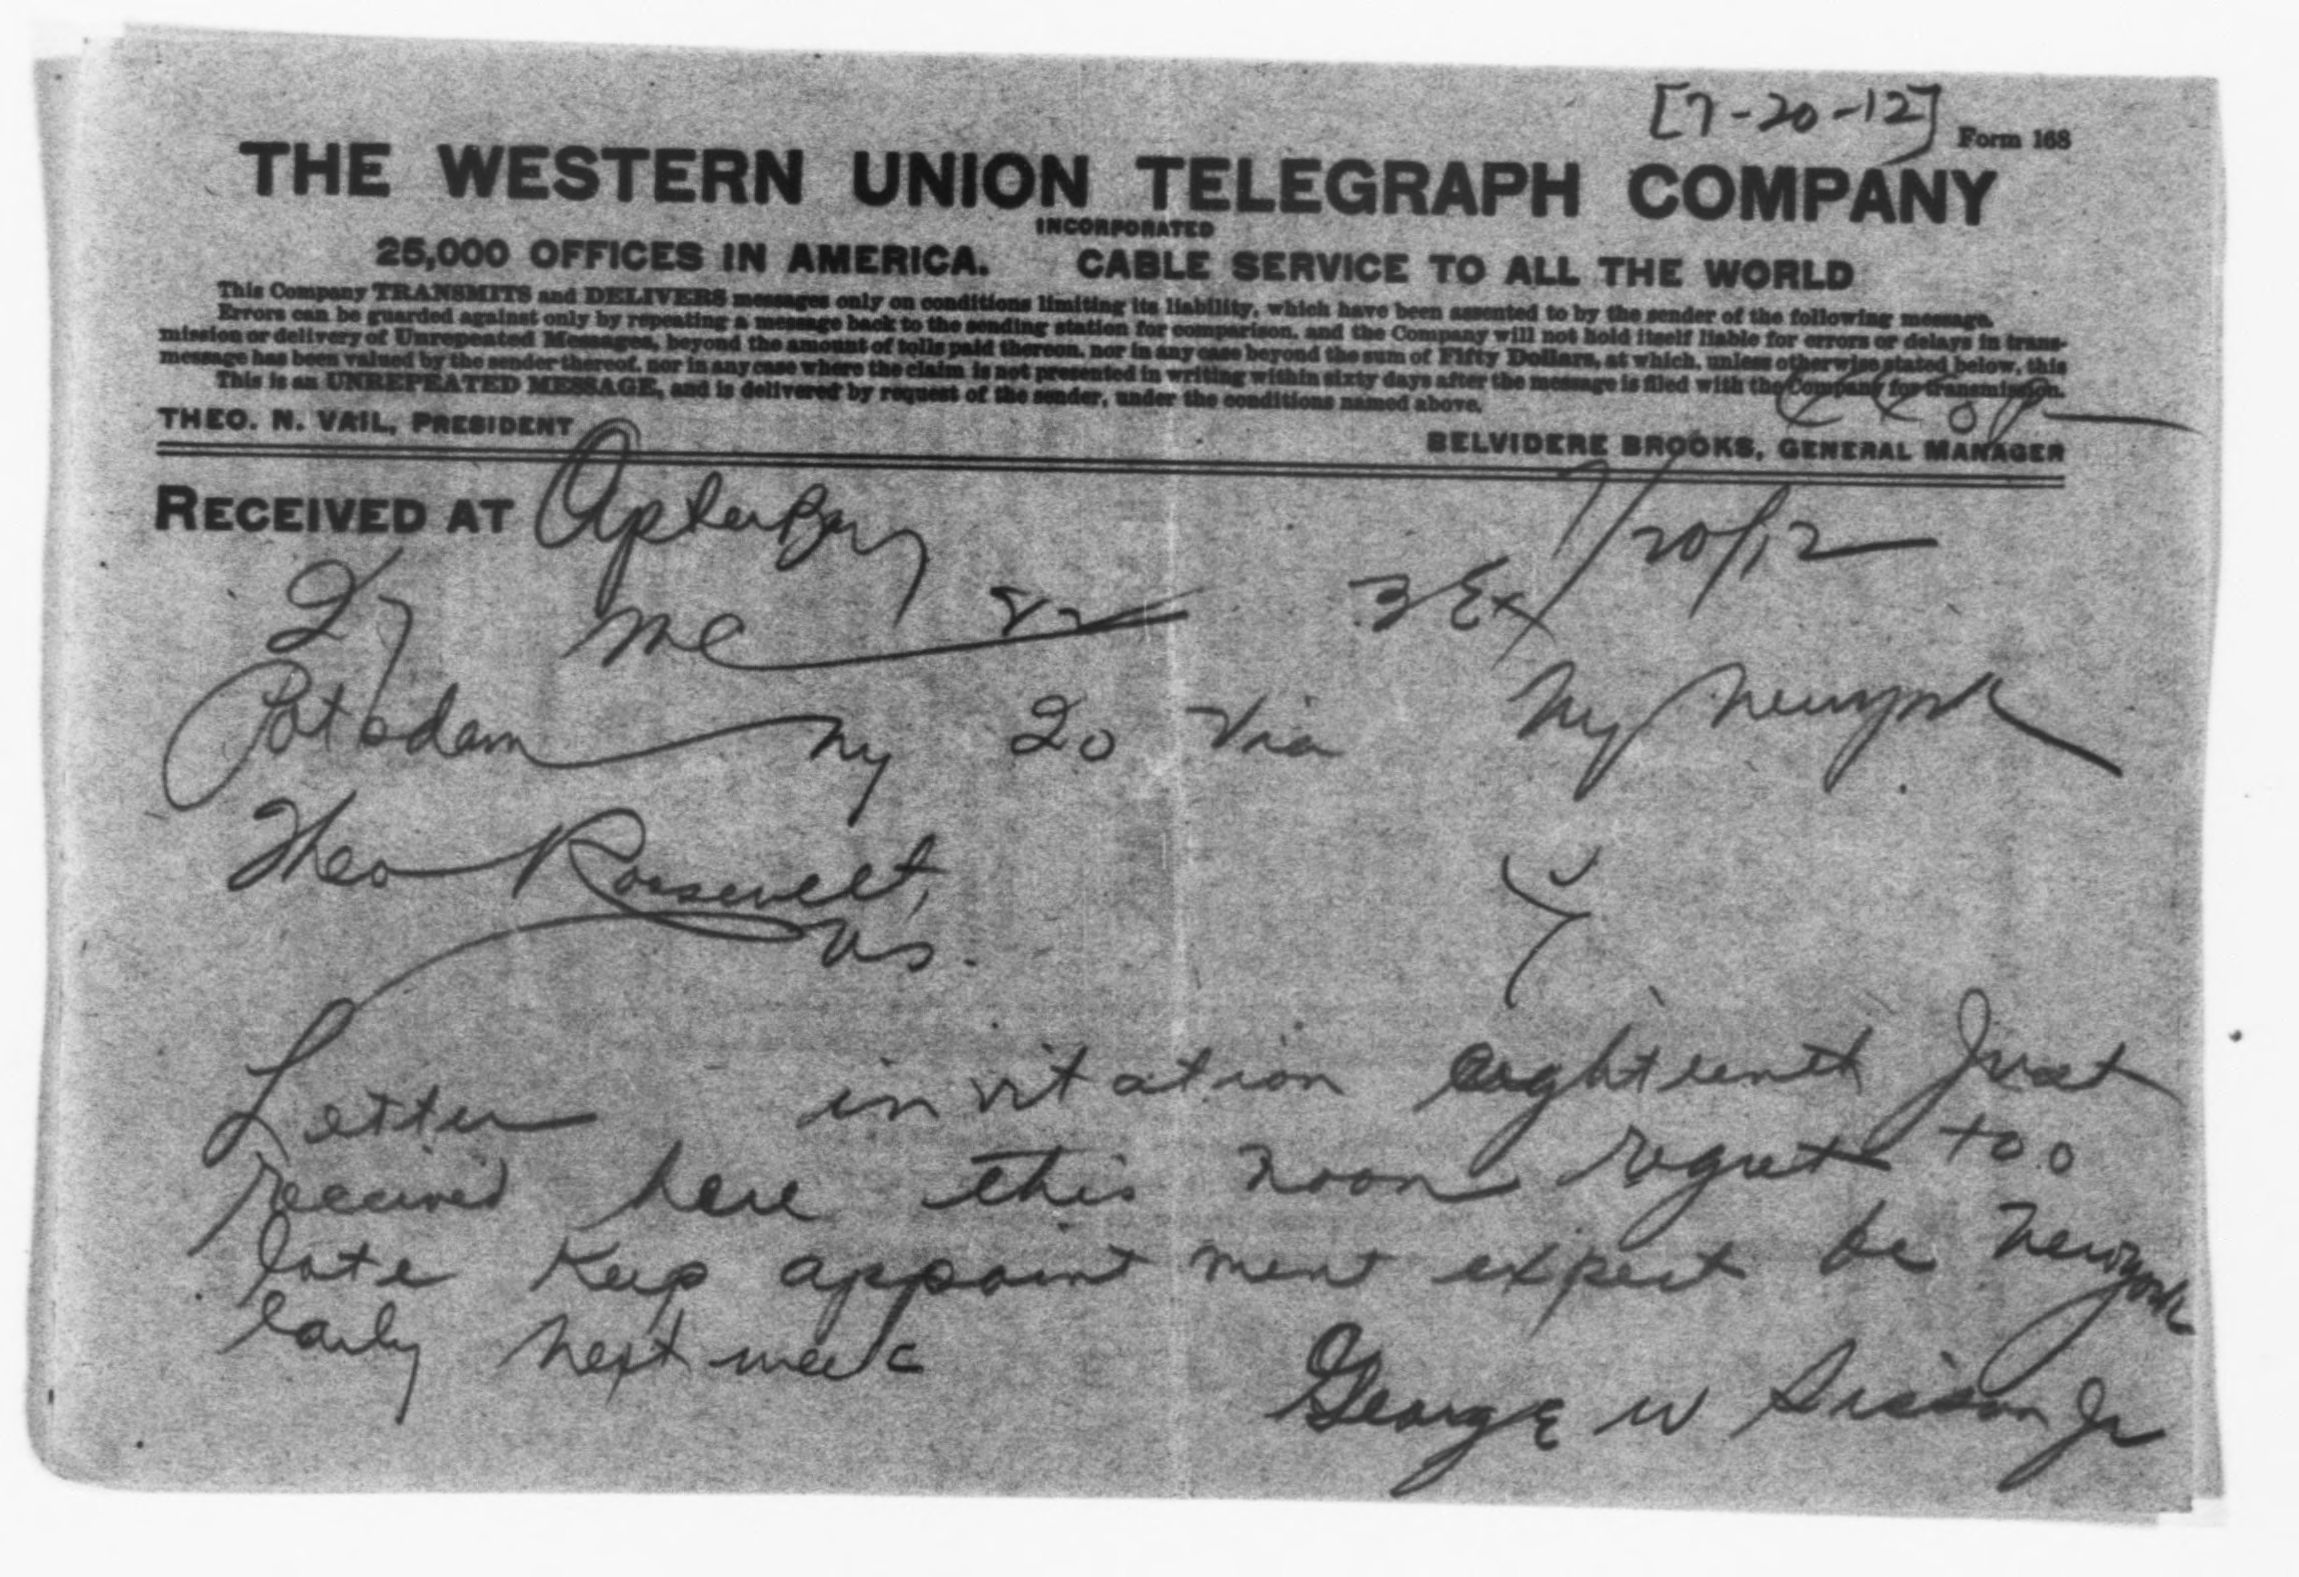 [7-20-12] Form 168
THE WESTERN UNION TELEGRAPH COMPANY
INCORPORATED
25,000 OFFICES IN AMERICA. CABLE SERVICE TO ALL THE WORLD
This Company TRANSMITS and DELIVERS messages only on conditions limiting its liability, which have been assented to by the sender of the following message.
Errors can be guarded against only by repeating a message back to the sending station for comparison, and the Company will not hold itself liable for errors or delays in trans-
mission or delivery of Unrepeated Messages, beyond the amount of tolls paid thereon, nor in any case beyond the sum of Fifty Dollars, at which, unless otherwise stated below, this
message has been valued by the sender thereof, nor in any case where the claim is not presented in writing within sixty days after the message is filed with the Company for transmission.
This is an UNREPEATED MESSAGE, and is delivered by request of the sender, under the conditions named above.
THEO. N. VAIL, PRESIDENT BELVIDERE BROOKS, GENERAL MANAGER
RECEIVED AT 7/20/12
3 Ex
Potsdam ny 20 via Ny Newyork
Theo Roosevelt,
Letter invitation eighteenth Just
received here this noon regret too
late Keep appointment expect be Newyork
Early next week
George W Sisson Jr